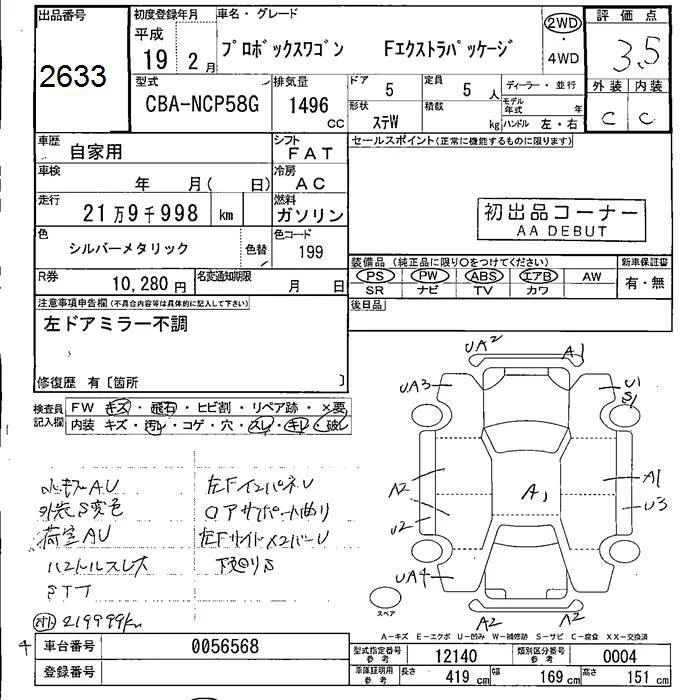 出品番号
2633
初度登録年月
平成
19 2月
車名・グレード
プロボックスワゴン Fエクストラパッケージ
2WD
・
4WD
評価点
3.5
外装 内装
C C
型式
CBA-NCP58G
排気量
1496
CC
ドア
5
定員
5 人
形状
ステW
積載
kg
ディーラー・並行
モデル年式 年
ハンドル 左・右
車歴
自家用
シフト
FAT
車検
年 月( 日)
冷房
AC
走行
21万9千998 km
燃料
ガソリン
色
シルバーメタリック
色替
色コード
199
R券
10,280円
名変通知期限
月 日
セールスポイント(正常に機能するものに限ります)
初出品コーナー
AA DEBUT
装備品(純正品に限り○をつけてください)
新車保証書
PS PW ABS エアB AW
SR ナビ TV カワ
有・無
後日品
注意事項申告欄(不具合内容等は具体的に記入して下さい)
左ドアミラー不調
修復歴 有〔箇所 〕
検査員記入欄
FW キズ・飛石・ヒビ割・リペア跡・×要
内装 キズ・汚レ・コゲ・穴・スレ・キレ・破レ
外装S変色
荷室AU
ハンドルスレ大
左FインパネU
ロアサポート曲り
左FサイドメンバーU
下廻りS
219999km
UA2
A1
UA3
U1
S1
A2
U2
A1
A1
U3
UA4
A2
A2
スペア
A-キズ E-エクボ U-凹み W-補修跡 S-サビ C-腐食 XX-交換済
4
車台番号
0056568
登録番号
型式指定番号
参考
12140
類別区分番号
参考
0004
車庫証明用
参考
長さ 419 cm
幅 169 cm
高さ 151 cm